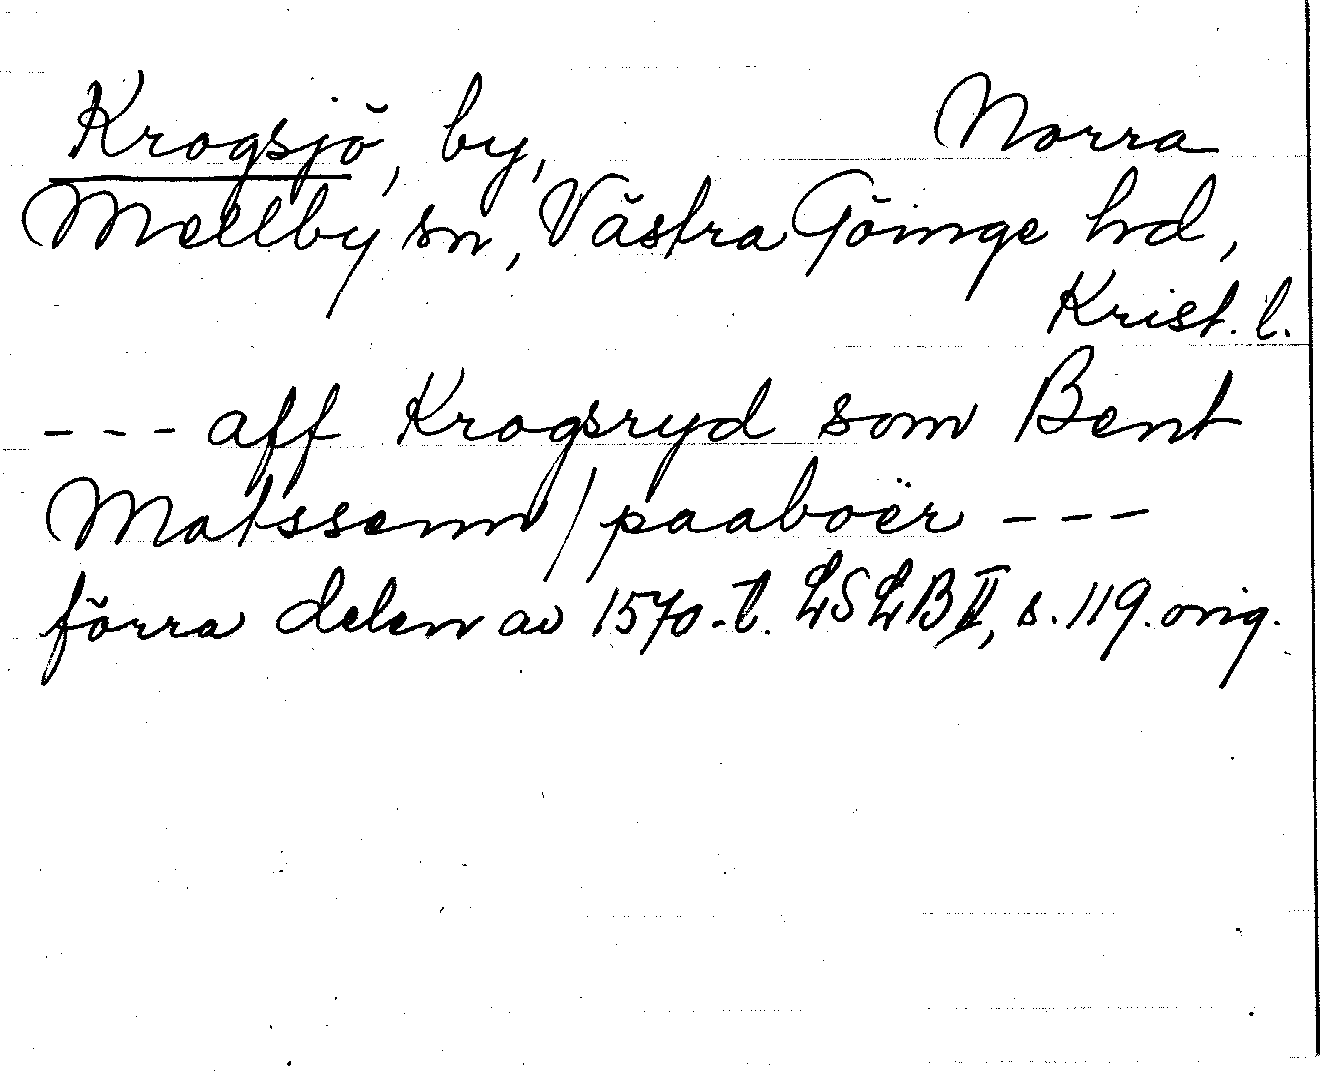 Krogsjö, by, Norra
Mellby sn, Västra Göinge hd,
Krist. l.
--- aff Krogsryd som Bent
Matssenn / paaboër ---
förra delen av 1570-t. LSLB II, s. 119. orig.